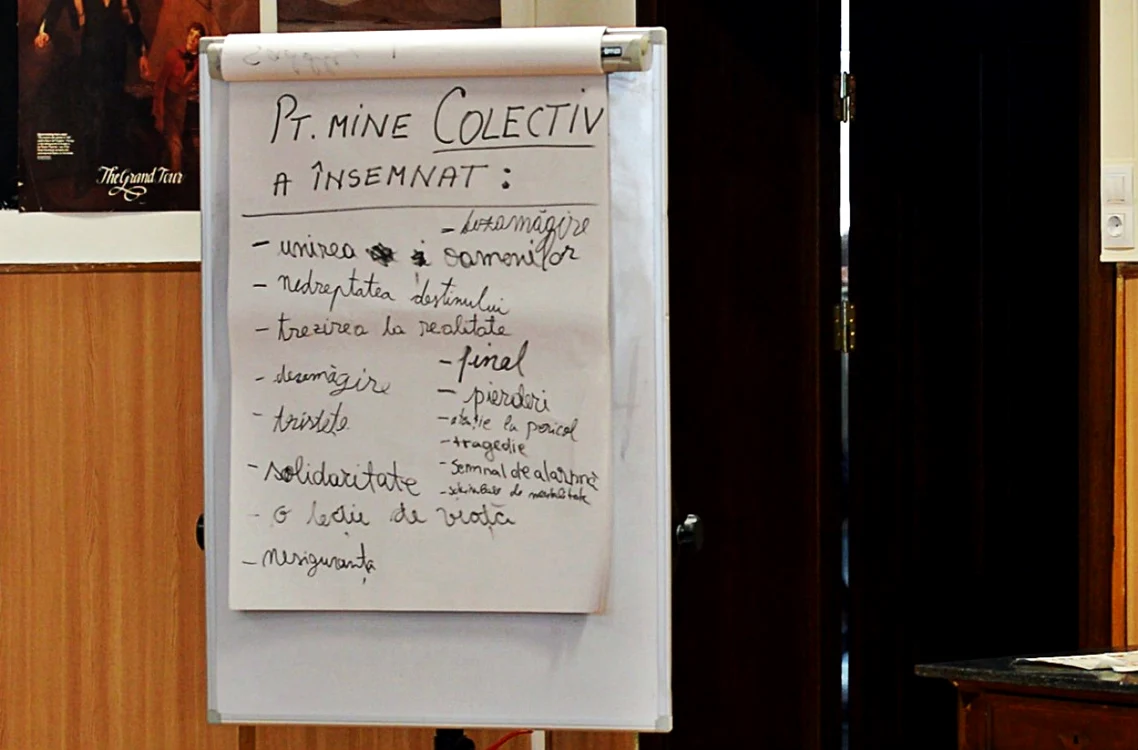 The Grand Tour
PT. MINE COLECTIV
A ÎNSEMNAT :
- dezamăgire
- unirea oamenilor
- nedreptatea destinului
- trezirea la realitate
- dezamăgire
- tristețe
- solidaritate
- o lecție de viață
- nesiguranța
- final
- pierderi
- la pericol
- tragedie
- semnal de alarmă
- schimbare de mentalitate